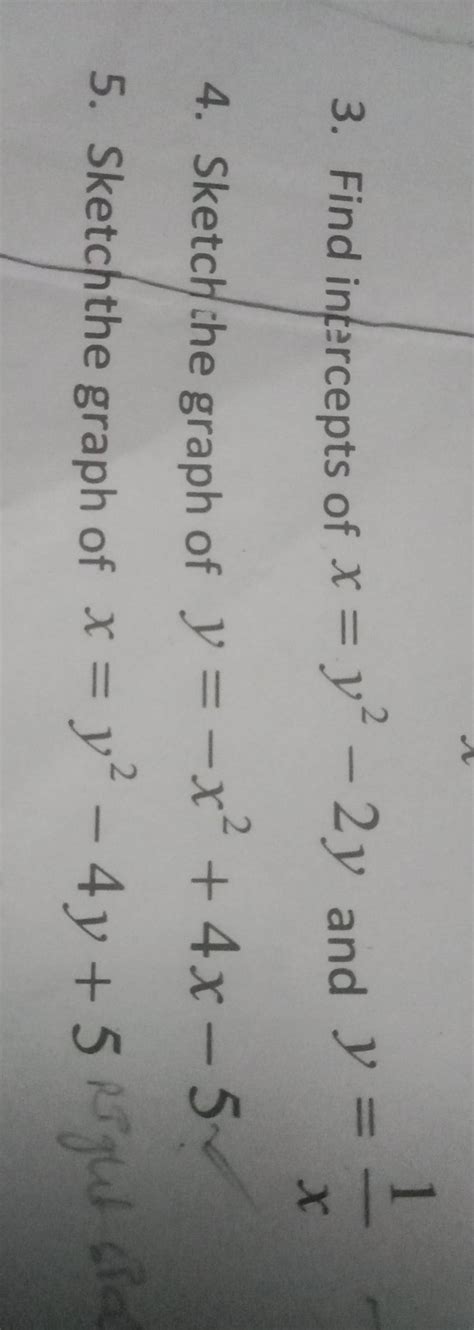 3. Find intercepts of x = y² − 2y and y = 1/x
4. Sketch the graph of y = −x² + 4x − 5
5. Sketch the graph of x = y² − 4y + 5 Right